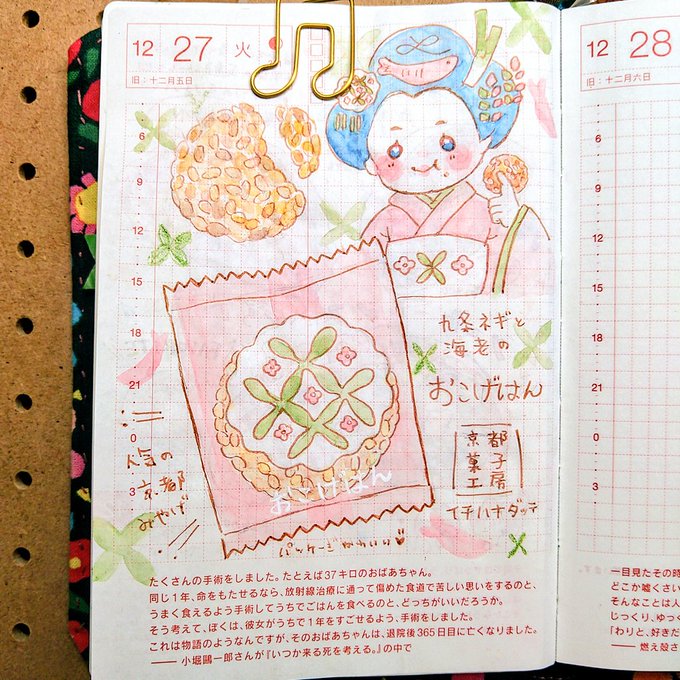 12 27 火
旧：十二月五日
6
9
12
15
18
21
0
3
九条ネギと
海老の
おこげはん
京都
菓子
工房
イチハナダッテ
人気の
京都
みやげ
おこげはん
パッケージかわいい
たくさんの手術をしました。たとえば37キロのおばあちゃん。
同じ1年、命をもたせるなら、放射線治療に通って傷めた食道で苦しい思いをするのと、
うまく食えるよう手術してうちでごはんを食べるのと、どっちがいいだろうか。
そう考えて、ぼくは、彼女がうちで1年をすごせるよう、手術をしました。
これは物語のようなんですが、そのおばあちゃんは、退院後365日目に亡くなりました。
――小堀鷗一郎さんが『いつか来る死を考える。』の中で
12 28
旧：十二月六日
6
9
12
15
18
21
0
3
一目見たその時
どこか嘘くさい
そんなことは人
じっくり、ゆっく
「わりと、好きだ
――燃え殻さ